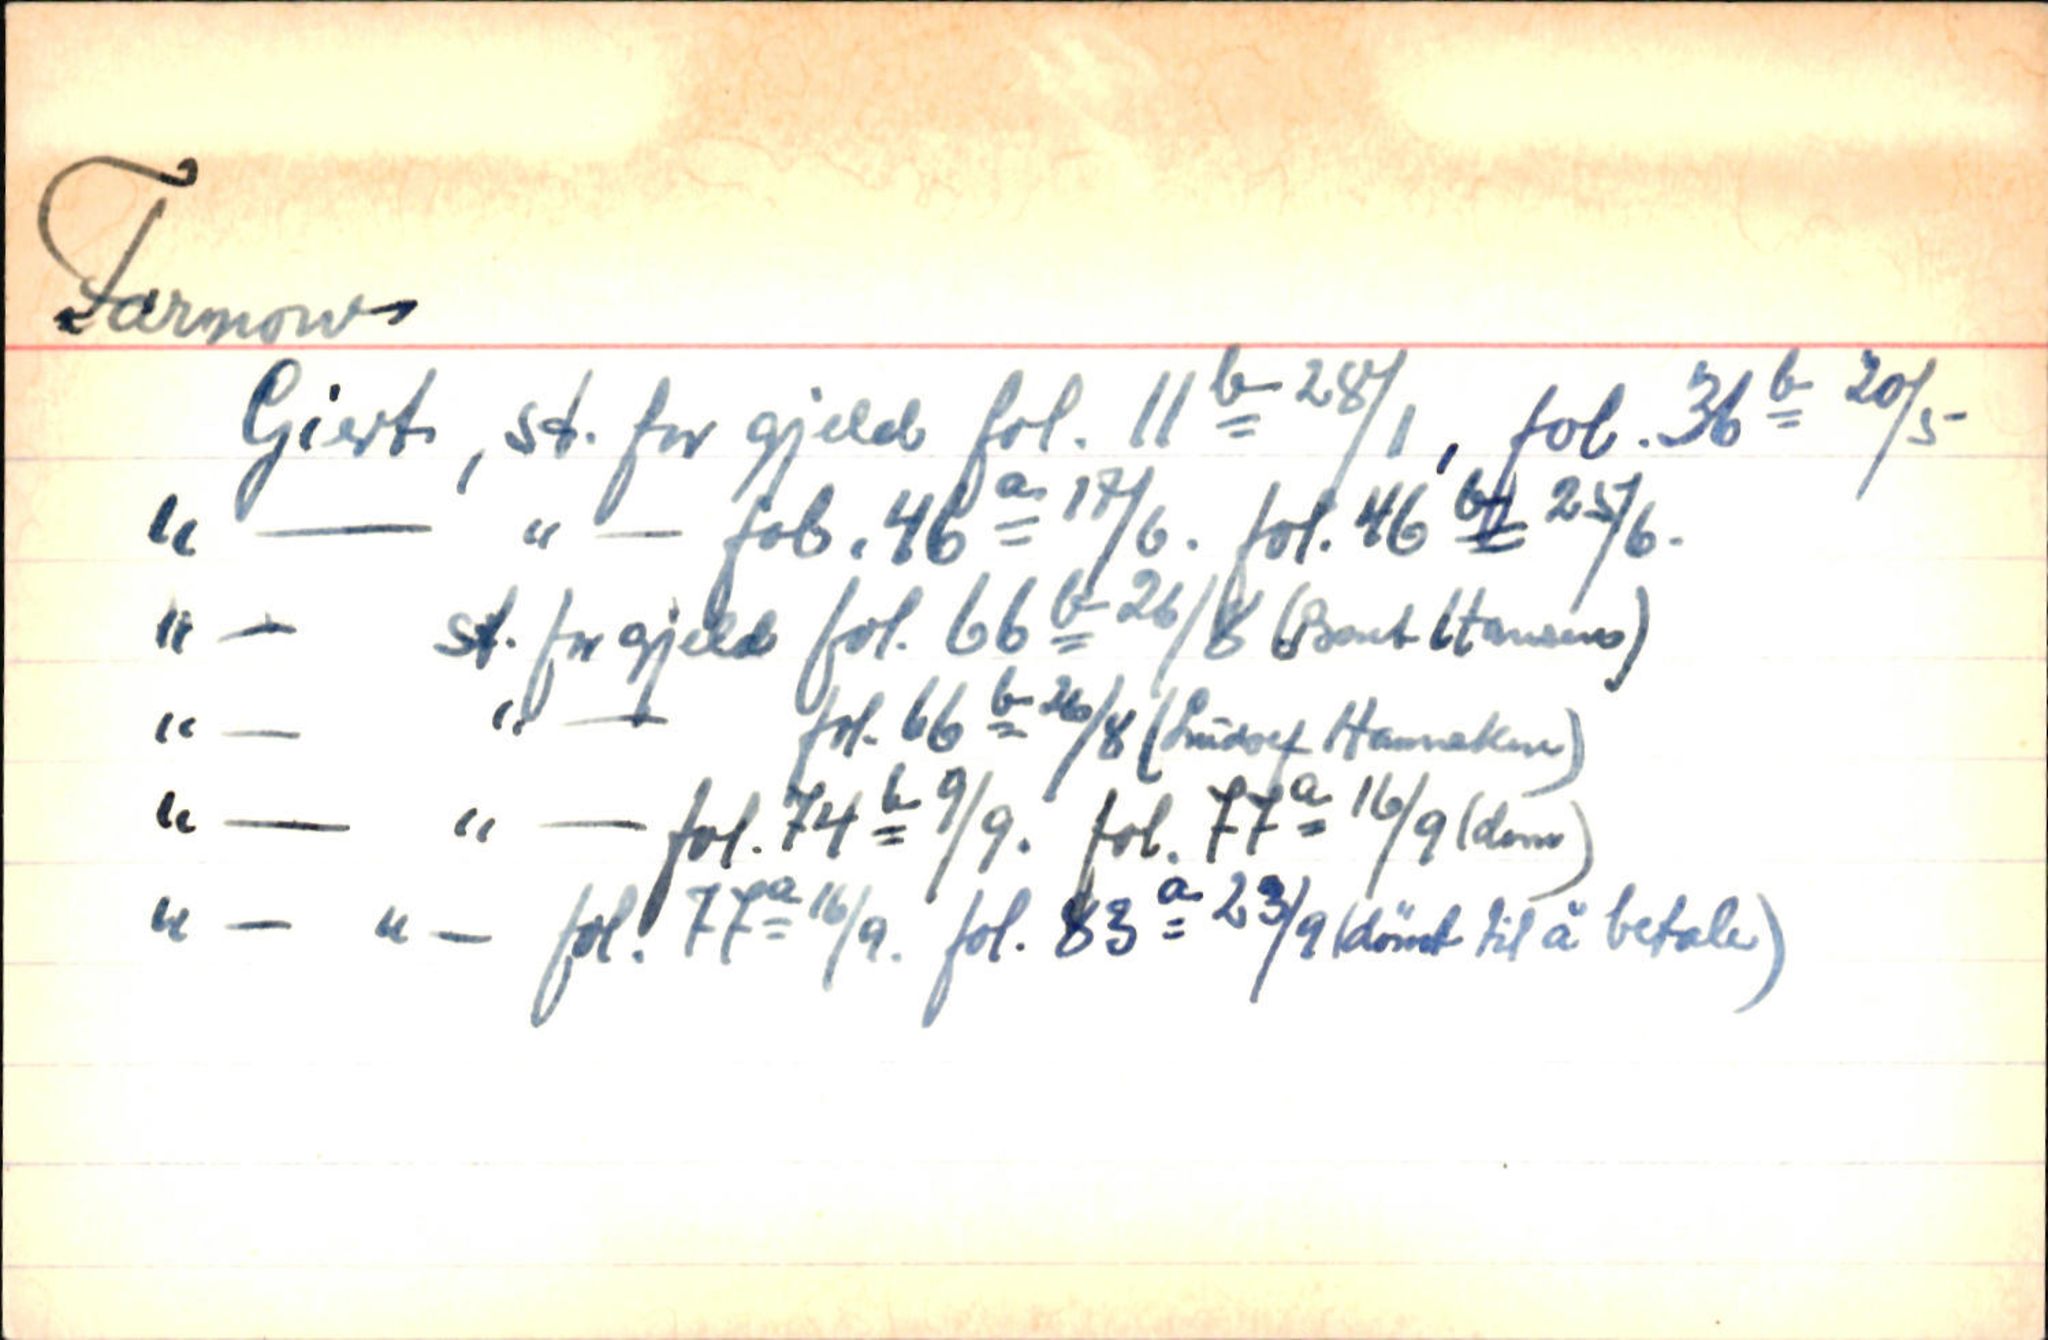 Tarmow
Giert, st. for gjeld fol. 11 b 28/1, fol. 36 b 20/5-
" — " — fol. 46 a 17/6. fol. 46 b 25/6.
" — st. for gjeld fol. 66 b 26/8 (Bent Hansen)
" — " — fol. 66 b 26/8 (Ludolf Hanneken)
" — " — fol. 74 b 9/9. fol. 77 a 16/9 (dom)
" — " — fol. 77 a 16/9. fol. 83 a 23/9 (dömt til å betale)